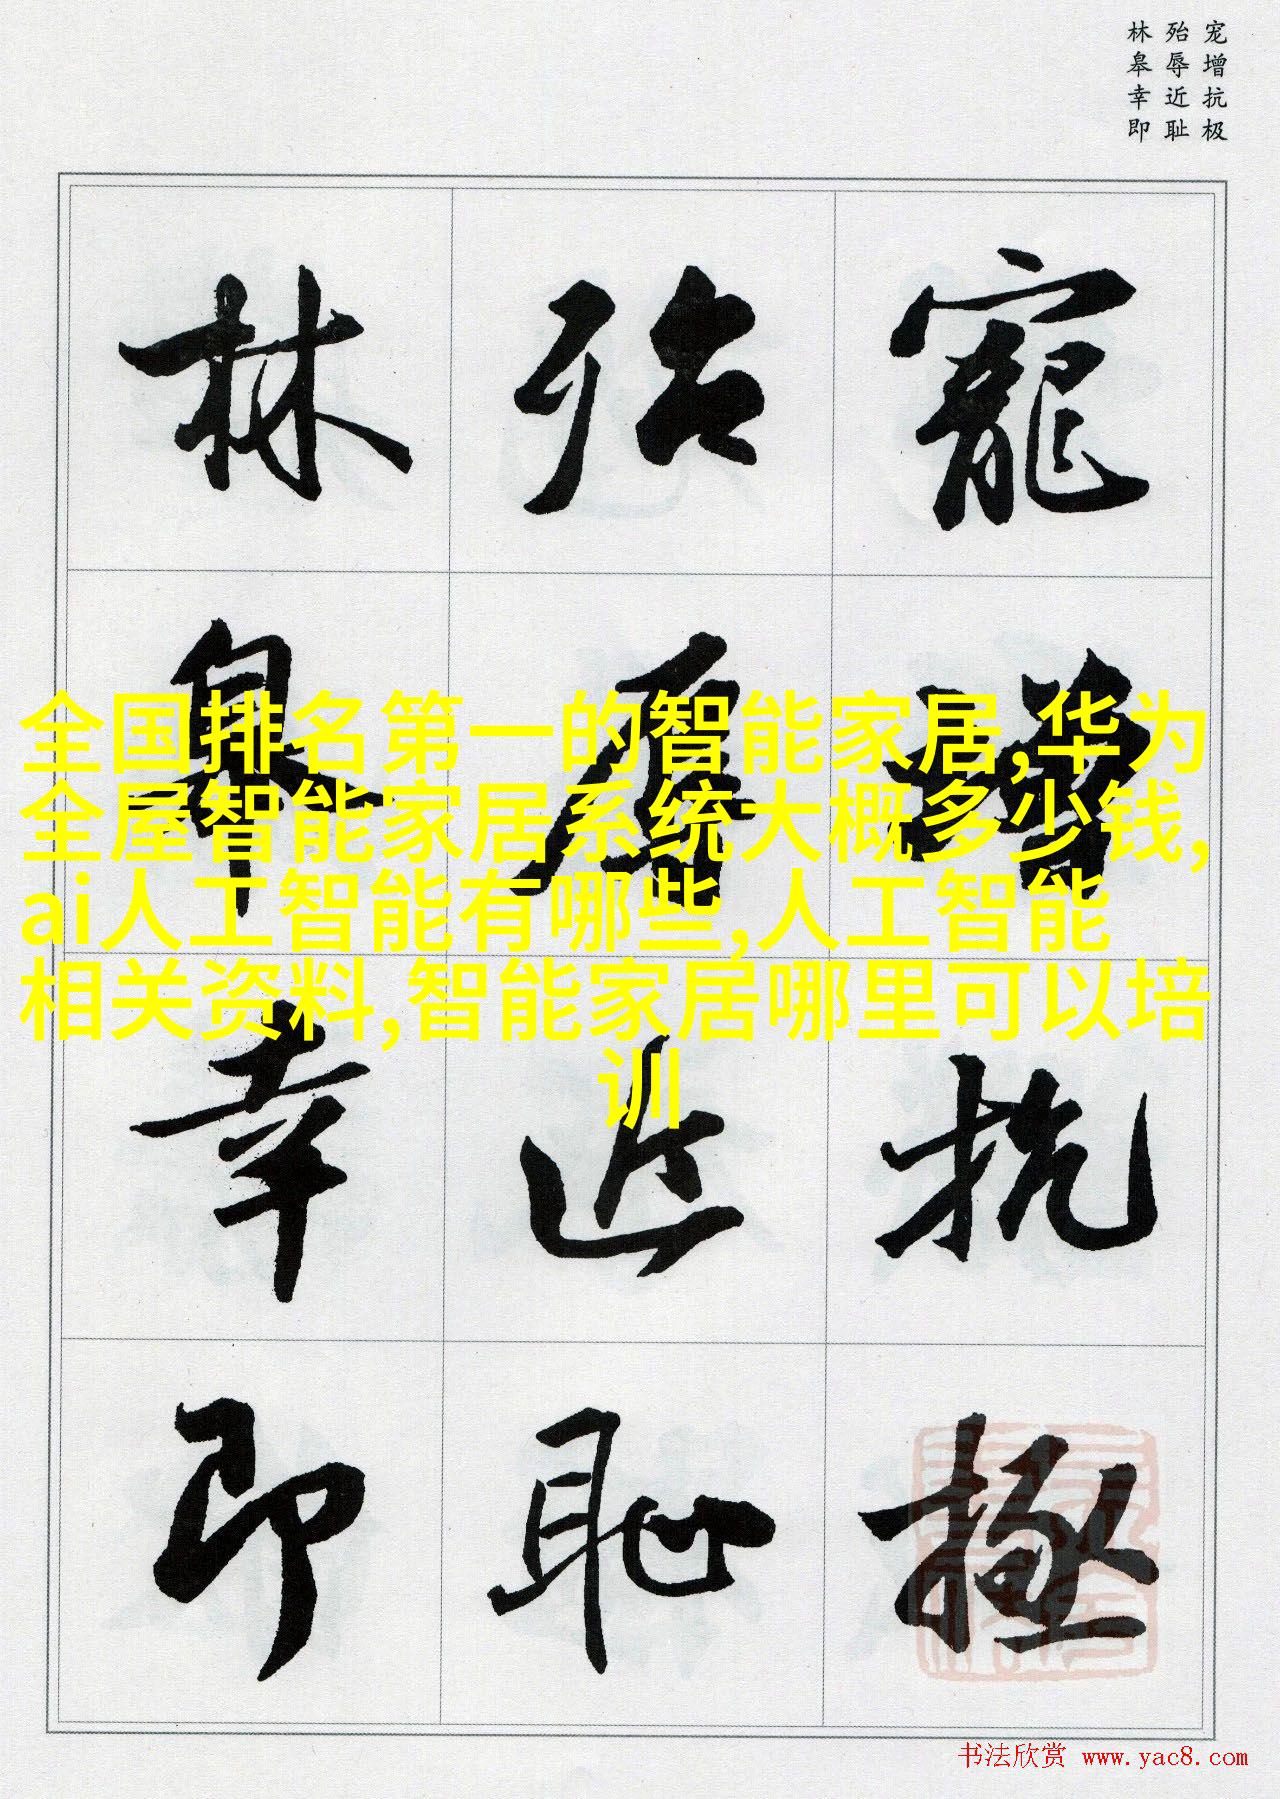 宠增抗极
殆辱近耻
林皋幸即
寵增抗極
殆辱近恥
林皋幸即
全国排名第一的智能家居,华为
全屋智能家居系统大概多少钱,
ai人工智能有哪些,人工智能
相关资料,智能家居哪里可以培
训
书法欣赏 www.yac8.com